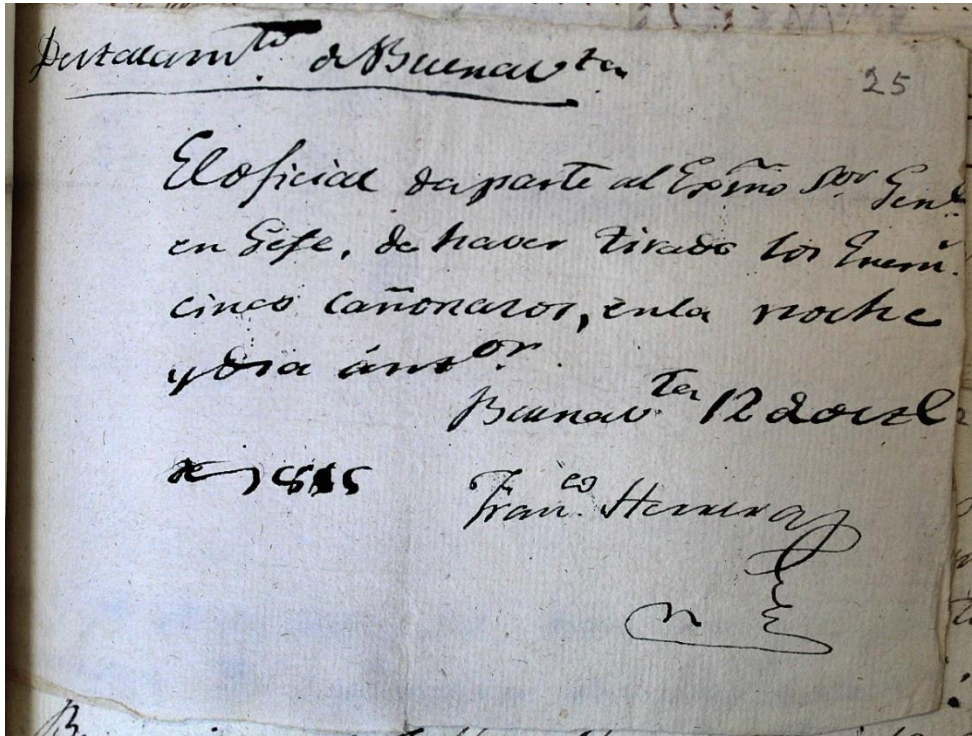 Destacam.to de Buenav.ta
25
El oficial da parte al Exmô Sor. Genl.
en Gefe, de haver tirado los Enem.
cinco cañonazos, en la noche
y dia ánt.or
Buenav.ta 12 de
de 1815
Fran.co Herrera